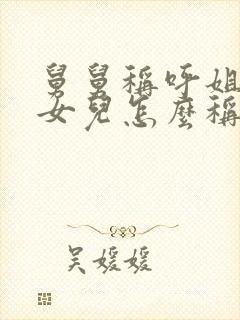 舅舅稱呼姐
女兒怎麼稱
吳媛媛